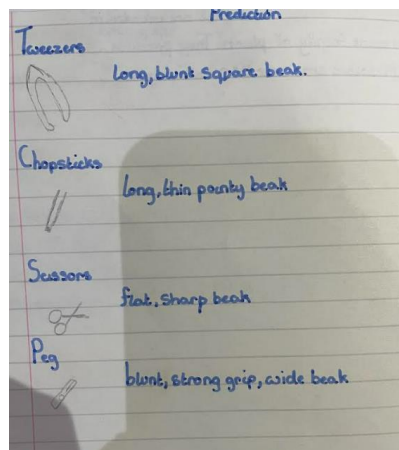 Prediction
Tweezers
Long, blunt square beak.
Chopsticks
long, thin pointy beak
Scissors
flat, sharp beak
Peg
blunt, strong grip, wide beak